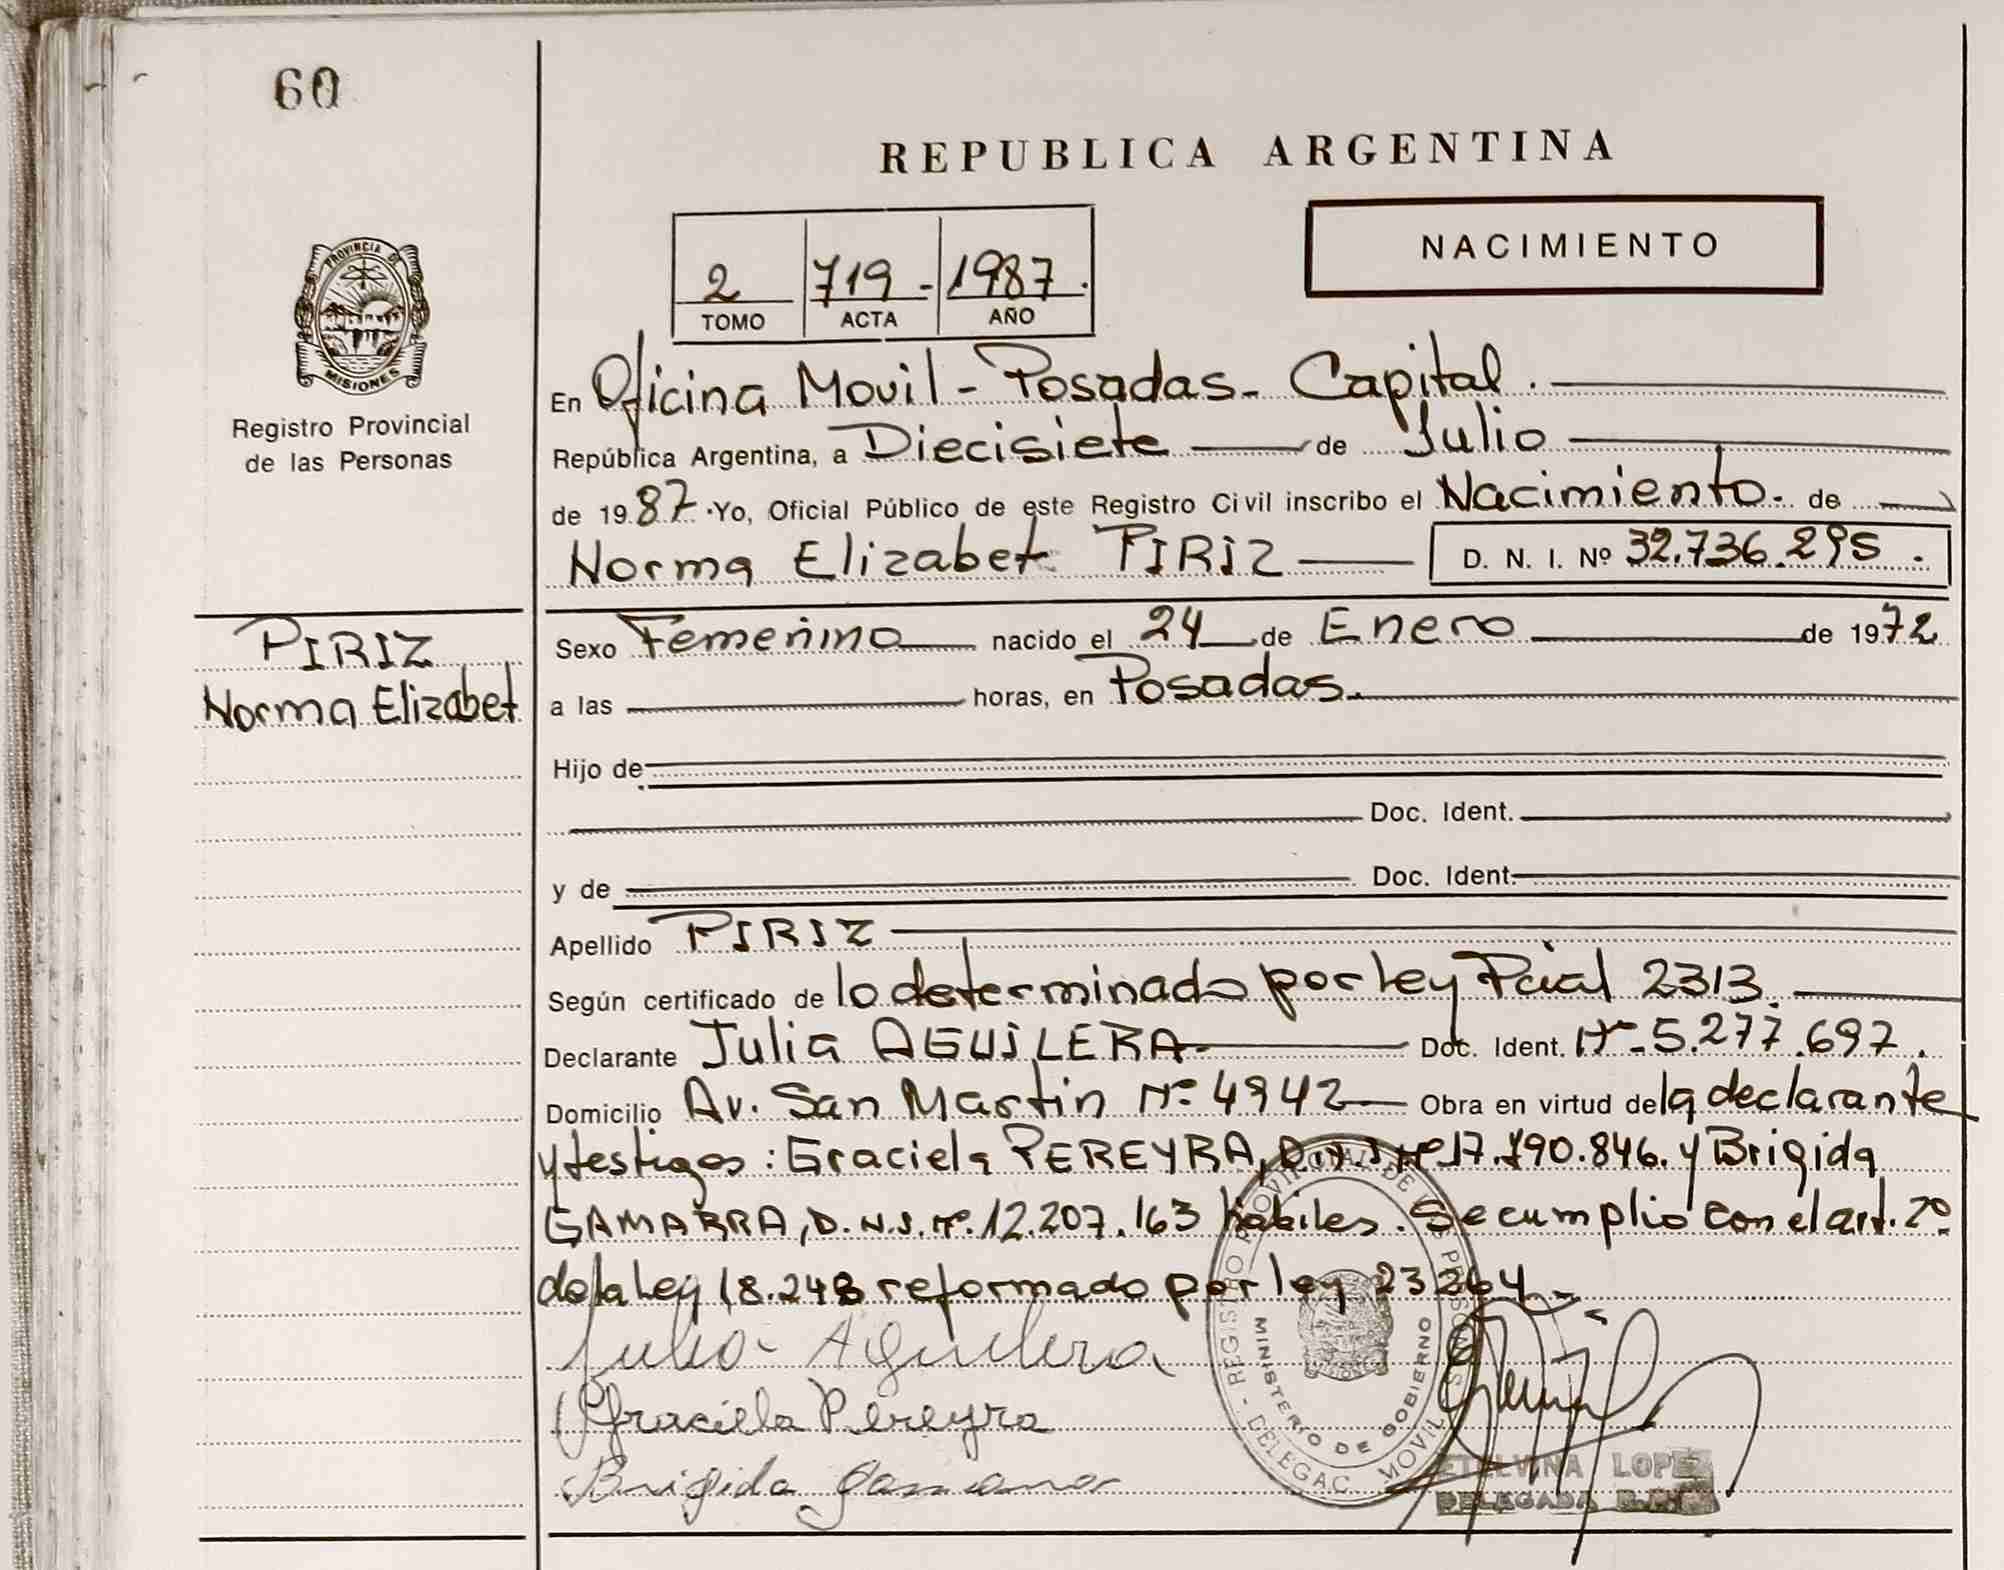 60
REPUBLICA ARGENTINA
NACIMIENTO
2 719- 1987.
TOMO ACTA AÑO
PROVINCIA DE
MISIONES
Registro Provincial
de las Personas
En Oficina Movil - Posadas - Capital.
República Argentina, a Diecisiete de Julio
de 1987. Yo, Oficial Público de este Registro Civil inscribo el Nacimiento. de
Norma Elizabet PIRIZ D. N. I. Nº 32.736.295.
PIRIZ
Norma Elizabet
Sexo Femenino nacido el 24 de Enero de 1972
a las horas, en Posadas.
Hijo de
Doc. Ident.
y de Doc. Ident.
Apellido PIRIZ
Según certificado de lo determinado por ley Pcial 2313.
Declarante Julia AGUILERA Doc. Ident. Nº 5.277.697.
Domicilio Av. San Martin Nº 4942 Obra en virtud de la declarante
y testigos: Graciela PEREYRA, D.N.I. Nº 17.190.846. y Brigida
GAMARRA, D.N.I. Nº. 12.207.163 habiles. Se cumplio con el art. 2º
de la Ley 18.248 reformado por ley 23264.-
Julia Aguilera
Graciela Pereyra
Brigida Gamarra
REGISTRO PROVINCIAL DE LAS PERSONAS - DELEGAC. MOVIL
MINISTERIO DE GOBIERNO
ETELVINA LOPEZ
DELEGADA